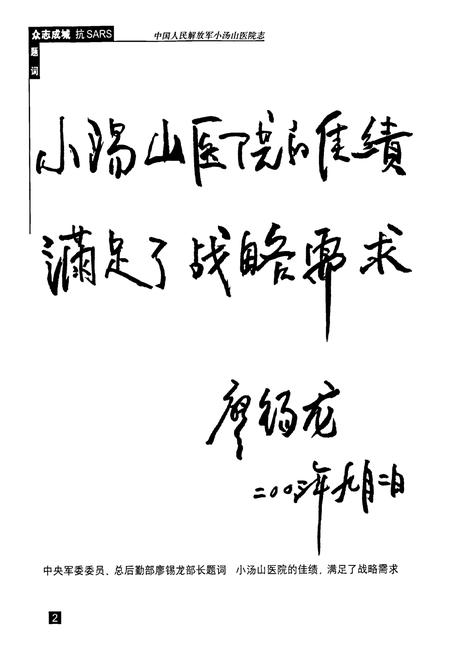 众志成城 抗SARS
中国人民解放军小汤山医院志
题词
小汤山医院的佳绩
满足了战略需求
廖锡龙
二〇〇三年九月二日
中央军委委员、总后勤部廖锡龙部长题词 小汤山医院的佳绩，满足了战略需求
2